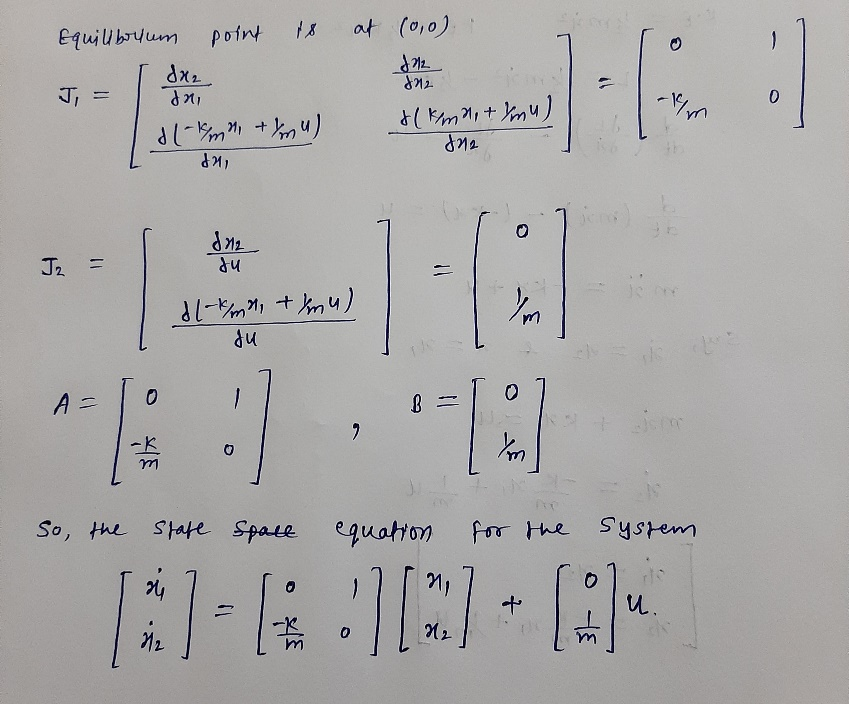 Equilibrium point is at (0,0)
J₁ = [ ∂x₂/∂x₁ ∂x₂/∂x₂ ; ∂(-k/m x₁ + 1/m u)/∂x₁ ∂(k/m x₁ + 1/m u)/∂x₂ ] = [ 0 1 ; -k/m 0 ]
J₂ = [ ∂x₂/∂u ; ∂(-k/m x₁ + 1/m u)/∂u ] = [ 0 ; 1/m ]
A = [ 0 1 ; -k/m 0 ] , B = [ 0 ; 1/m ]
So, the State Space equation for the System
[ ẋ₁ ; ẋ₂ ] = [ 0 1 ; -k/m 0 ] [ x₁ ; x₂ ] + [ 0 ; 1/m ] u.